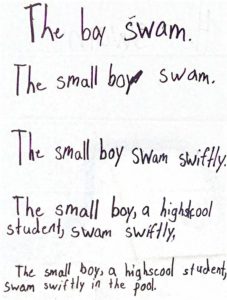 The boy swam.
The small boy swam.
The small boy swam swiftly.
The small boy, a highscool
student, swam swiftly,
The small boy, a highscool student,
swam swiftly in the pool.